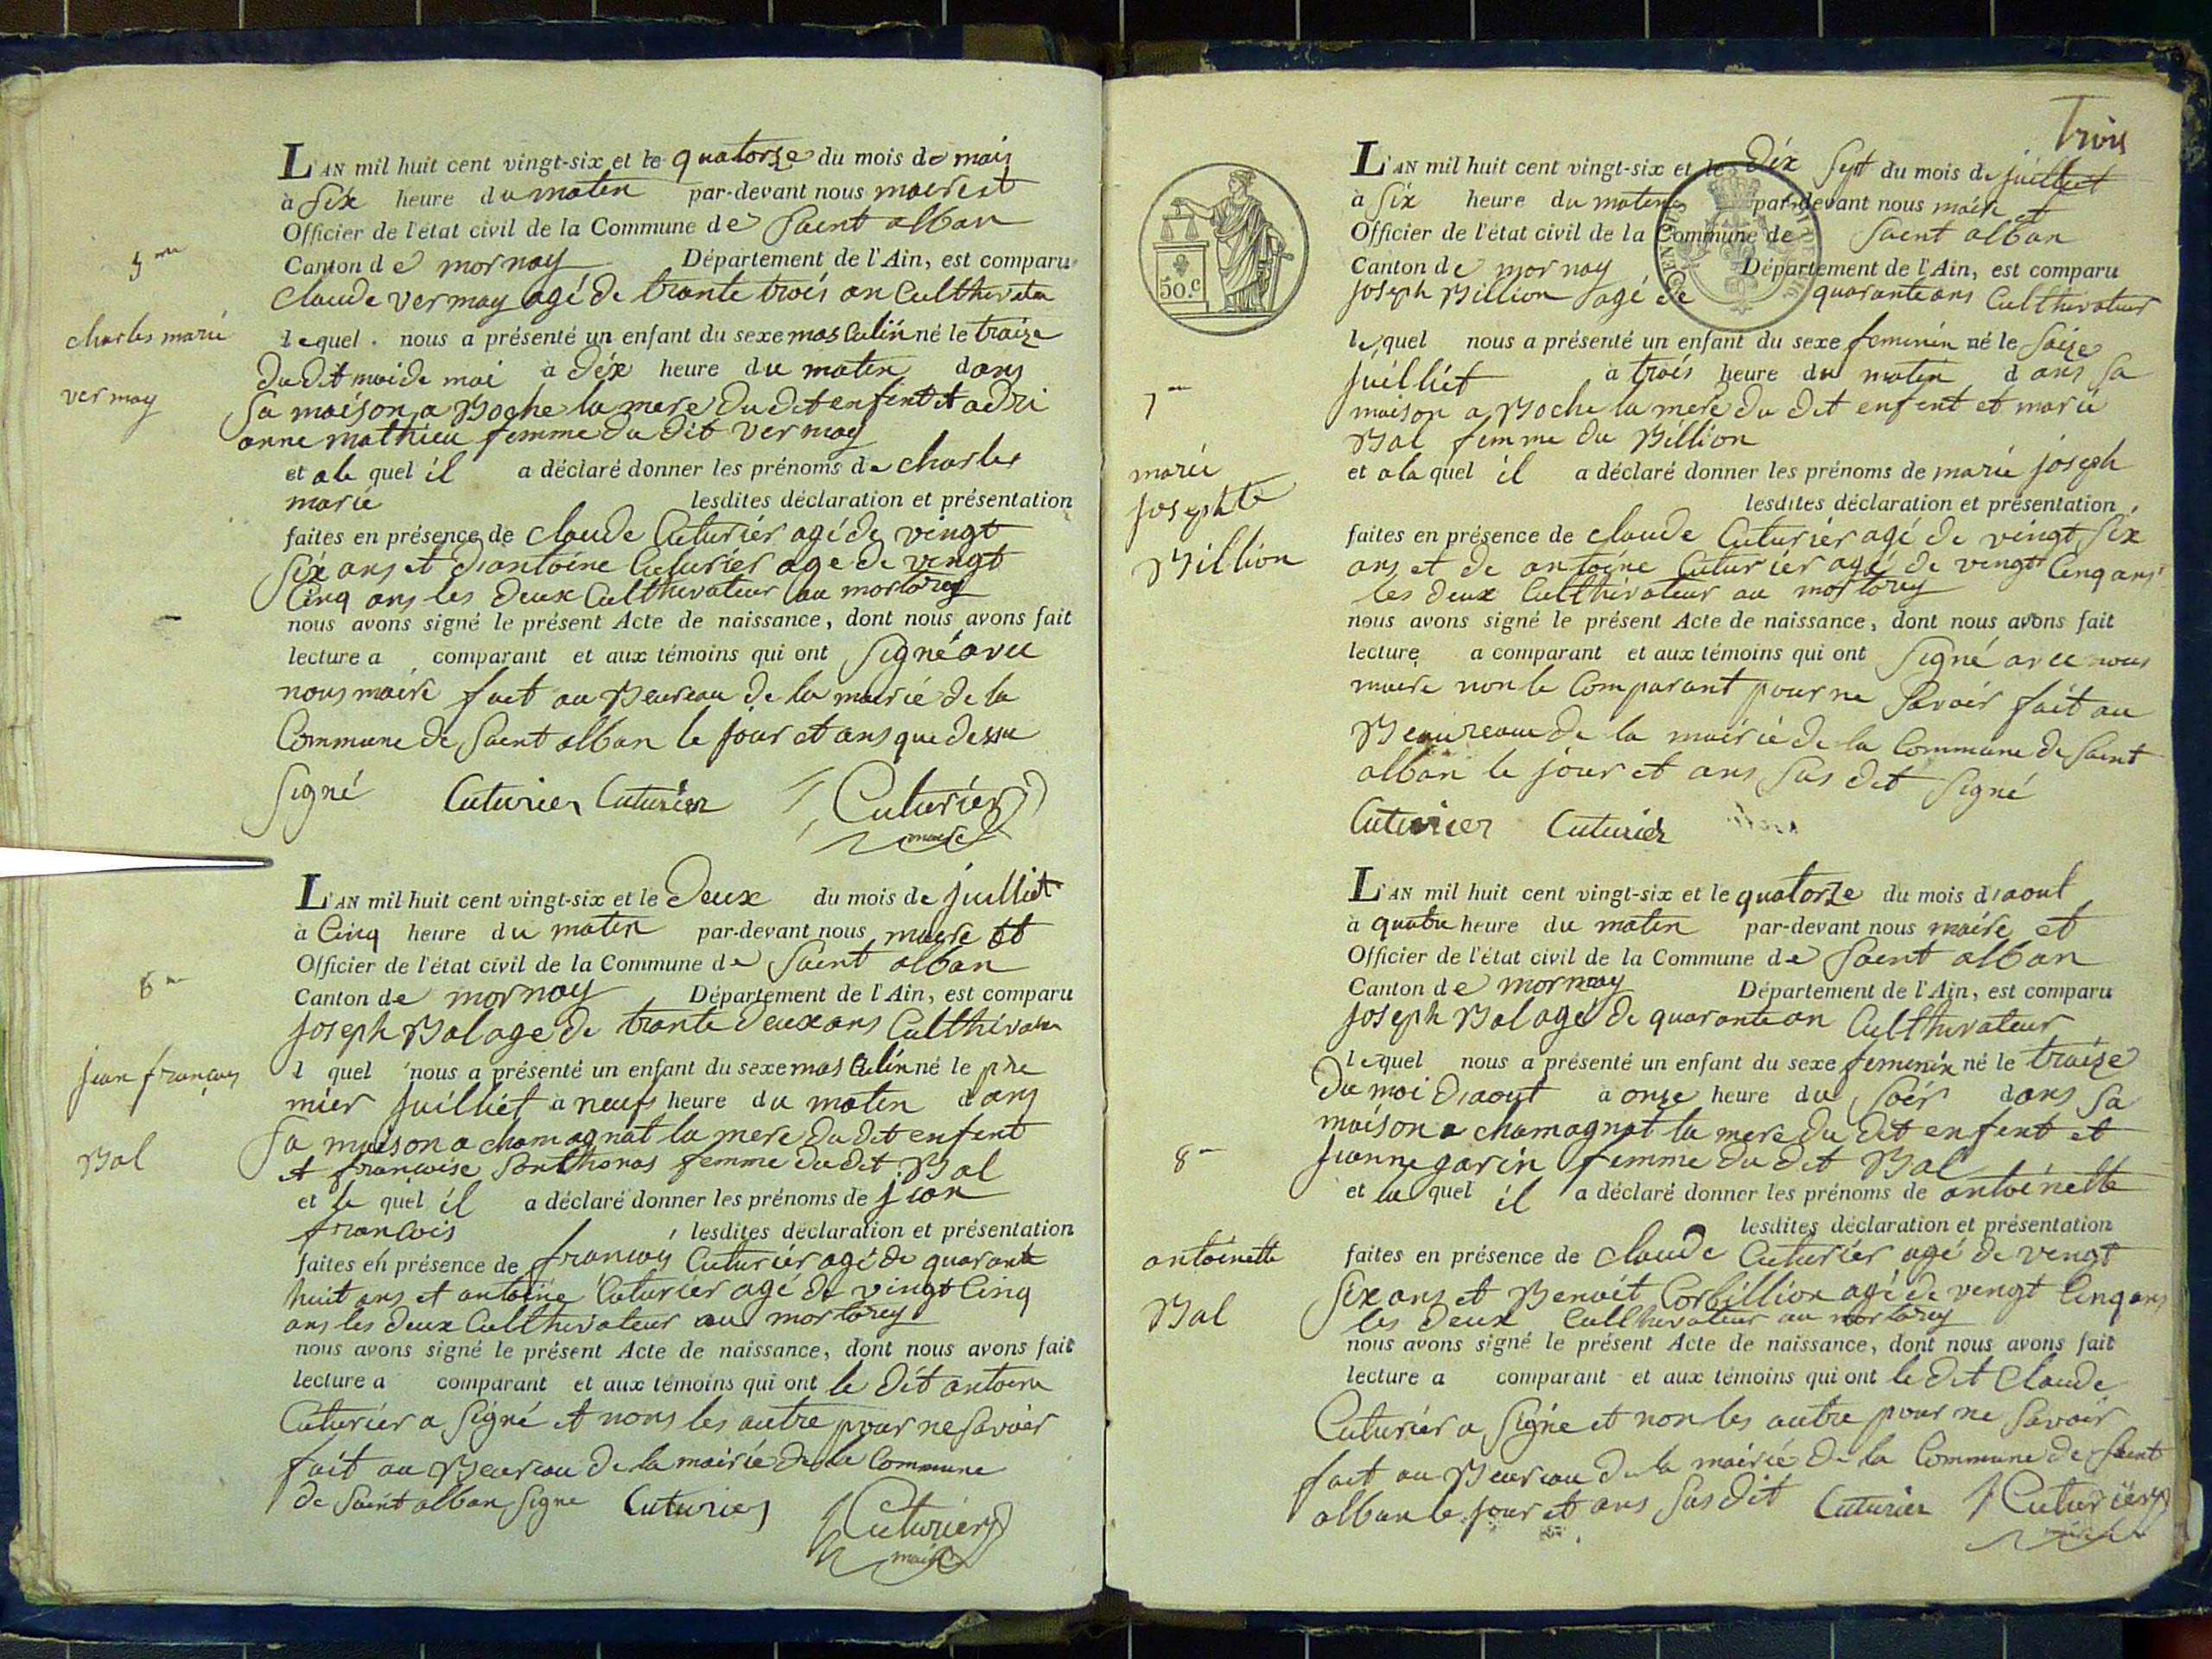 5me
charles marie
vermay
L'AN mil huit cent vingt-six et le quatorze du mois de mai
à six heure du maten par-devant nous maire et
Officier de l'état civil de la Commune de Saint alban
Canton de mornay Département de l'Ain, est comparu
claude vermay agé de trante trois an Culthivater
lequel nous a présenté un enfant du sexe masculin né le traize
dudit moi de mai à déx heure du maten dans
sa maison a Boche la mere du dit enfent et adri
anne mathieu femme du dit vermay
et ale quel il a déclaré donner les prénoms de charles
marie lesdites déclaration et présentation
faites en présence de claude Cuturier agé de vingt
six ans et d'antoine Cuturier age de vengt
Cinq ans les deux Culthivateur au mortorey
nous avons signé le présent Acte de naissance, dont nous avons fait
lecture a comparant et aux témoins qui ont signé avec
nous maire fait au Beureau de la mairie de la
Commune de Saint alban le jour et ans que dessu
signé Cuturier Cuturier Cuturier
maire
6me
jean françois
Bal
L'AN mil huit cent vingt-six et le deux du mois de juilliet
à Cinq heure du maten par-devant nous maire et
Officier de l'état civil de la Commune de Saint alban
Canton de mornay Département de l'Ain, est comparu
joseph Bal age de trante deux ans Culthivater
l quel nous a présenté un enfant du sexe masculin né le pre
mier juilliet à neufs heure du maten dans
sa maison a chamagnat la mere du dit enfent
et francoise Ponthonas femme du dit Bal
et le quel il a déclaré donner les prénoms de jean
francois lesdites déclaration et présentation
faites en présence de francois Cuturier agé de quarante
huit ans et antoine Cuturier agé de vingt Cinq
ans les deux Culthivateur au mortorey
nous avons signé le présent Acte de naissance, dont nous avons fait
lecture a comparant et aux témoins qui ont le dit antoine
Cuturier a signé et nons les autre pour ne savoir
fait au Beureau de la mairie de la Commune
de Saint alban signe Cuturier Cuturier
maire
Trois
50.c
7me
marie
josephte
Billion
L'AN mil huit cent vingt-six et le déx sept du mois de juilliet
à six heure du maten par-devant nous maire et
Officier de l'état civil de la Commune de Saint alban
Canton de mornay Département de l'Ain, est comparu
joseph Billion agé de quarante ans Culthivateur
lequel nous a présenté un enfant du sexe feminin né le saize
juilliet à trois heure du maten dans sa
maison a Boche la mere du dit enfent et marie
Bal femme du Billion
et ala quel il a déclaré donner les prénoms de marie joseph
lesdites déclaration et présentation
faites en présence de claude Cuturier agé de vingt six
ans et de antoine Cuturier agé de vengt Cinq ans
les deux Culthivateur au mortorey
nous avons signé le présent Acte de naissance, dont nous avons fait
lecture a comparant et aux témoins qui ont signé avec nous
maire non le Comparant pour ne savoir fait au
Beaureaue de la mairie de la Commune de Saint
alban le jour et ans sus dit signé
Cuturier Cuturier
8me
antoinette
Bal
L'AN mil huit cent vingt-six et le quatorze du mois d'aout
à quatre heure du maten par-devant nous maire et
Officier de l'état civil de la Commune de Saint alban
Canton de mornay Département de l'Ain, est comparu
joseph Bal agé de quarante an Culthivateur
lequel nous a présenté un enfant du sexe feminin né le traize
du moi d'aout à onze heure du soir dans sa
maison a chamagnat la mere du dit enfent et
jeanne garin femme du dit Bal
et la quel il a déclaré donner les prénoms de antoinette
lesdites déclaration et présentation
faites en présence de claude Cuturier agé de vengt
six ans et Benoit Corbillion agé de vengt Cinq ans
les deux Culthivateur au mortorey
nous avons signé le présent Acte de naissance, dont nous avons fait
lecture a comparant et aux témoins qui ont le dit claude
Cuturier a signé et non les autre pour ne savoir
fait au Beureau de la mairie de la Commune de Saint
alban le jour et ans sus dit Cuturier Cuturier